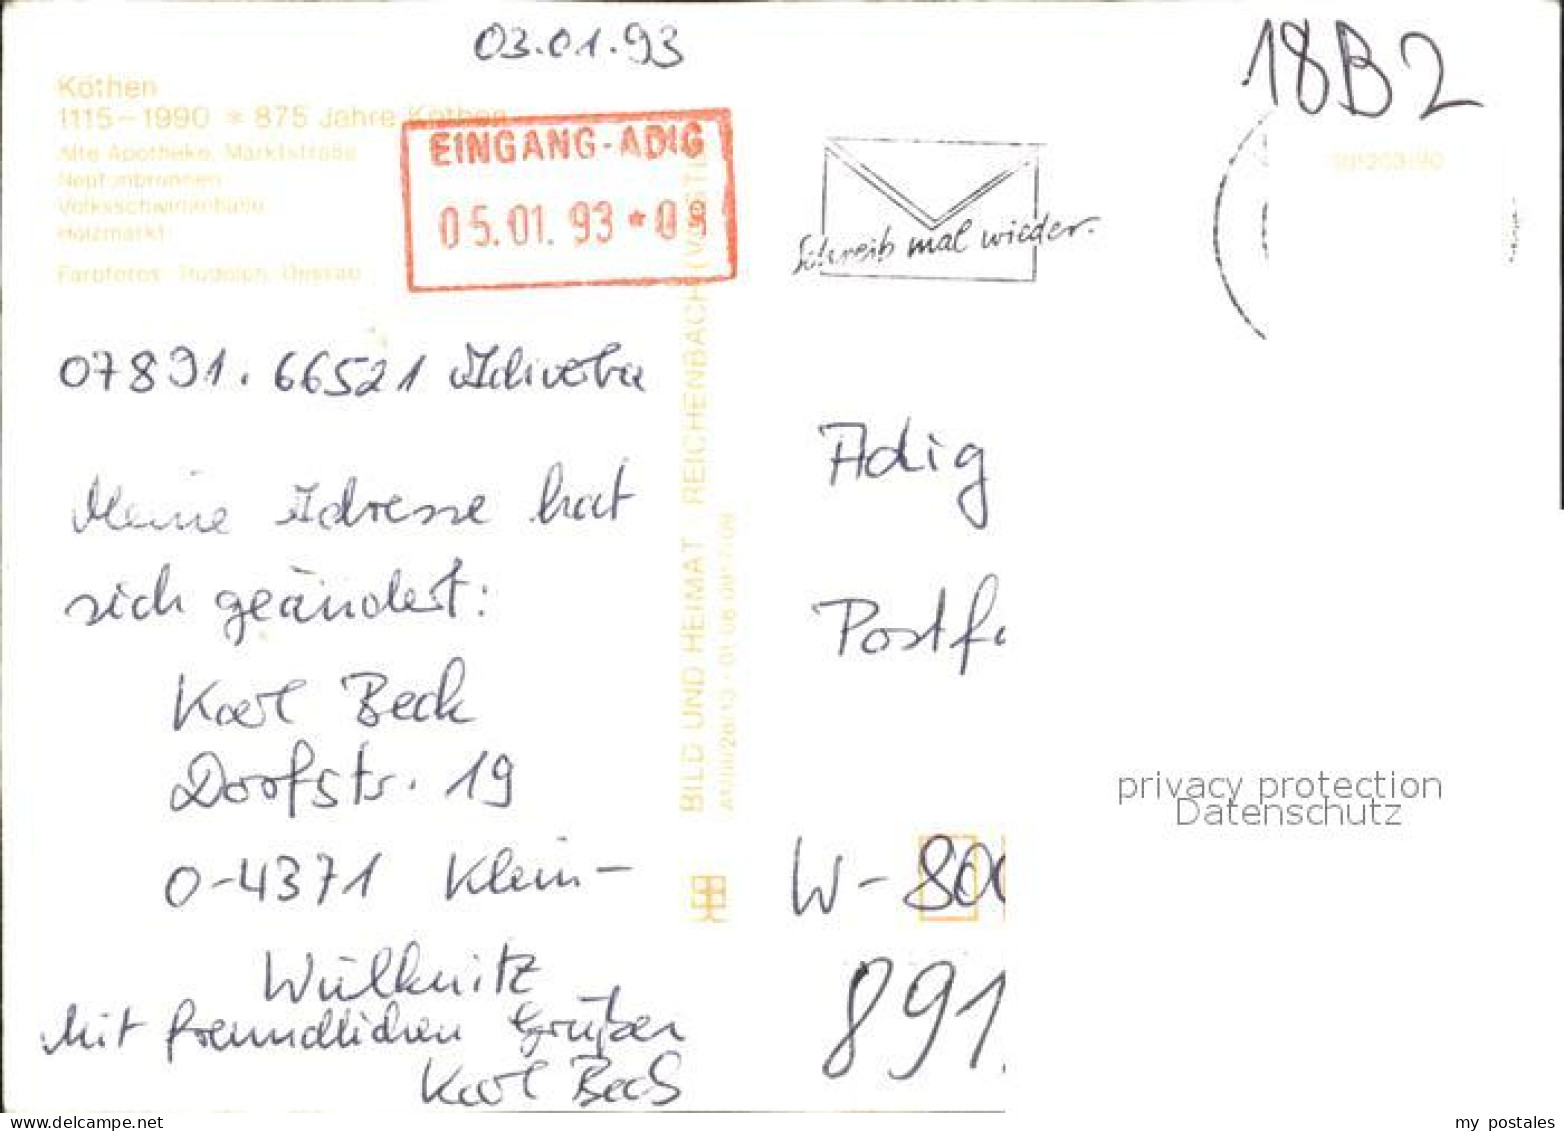 03.01.93
18B2
Köthen
1115–1990 * 875 Jahre Köthen
Alte Apotheke, Marktstraße
Neptunbrunnen
Volksschwimmhalle
Holzmarkt
Farbfotos: Rudolph, Dessau
EINGANG-ADIG
05.01.93*09
Schreib mal wieder.
07891.66521 Adiverba
Meine Adresse hat
sich geändert:
Karl Beck
Dorfstr. 19
O-4371 Klein-
Wülknitz
Mit freundlichen Grüßen
Karl Beck
BILD UND HEIMAT REICHENBACH (VOGTL)
Adig
Postfa
W-800
891
privacy protection
Datenschutz
www.delcampe.net
my_postales